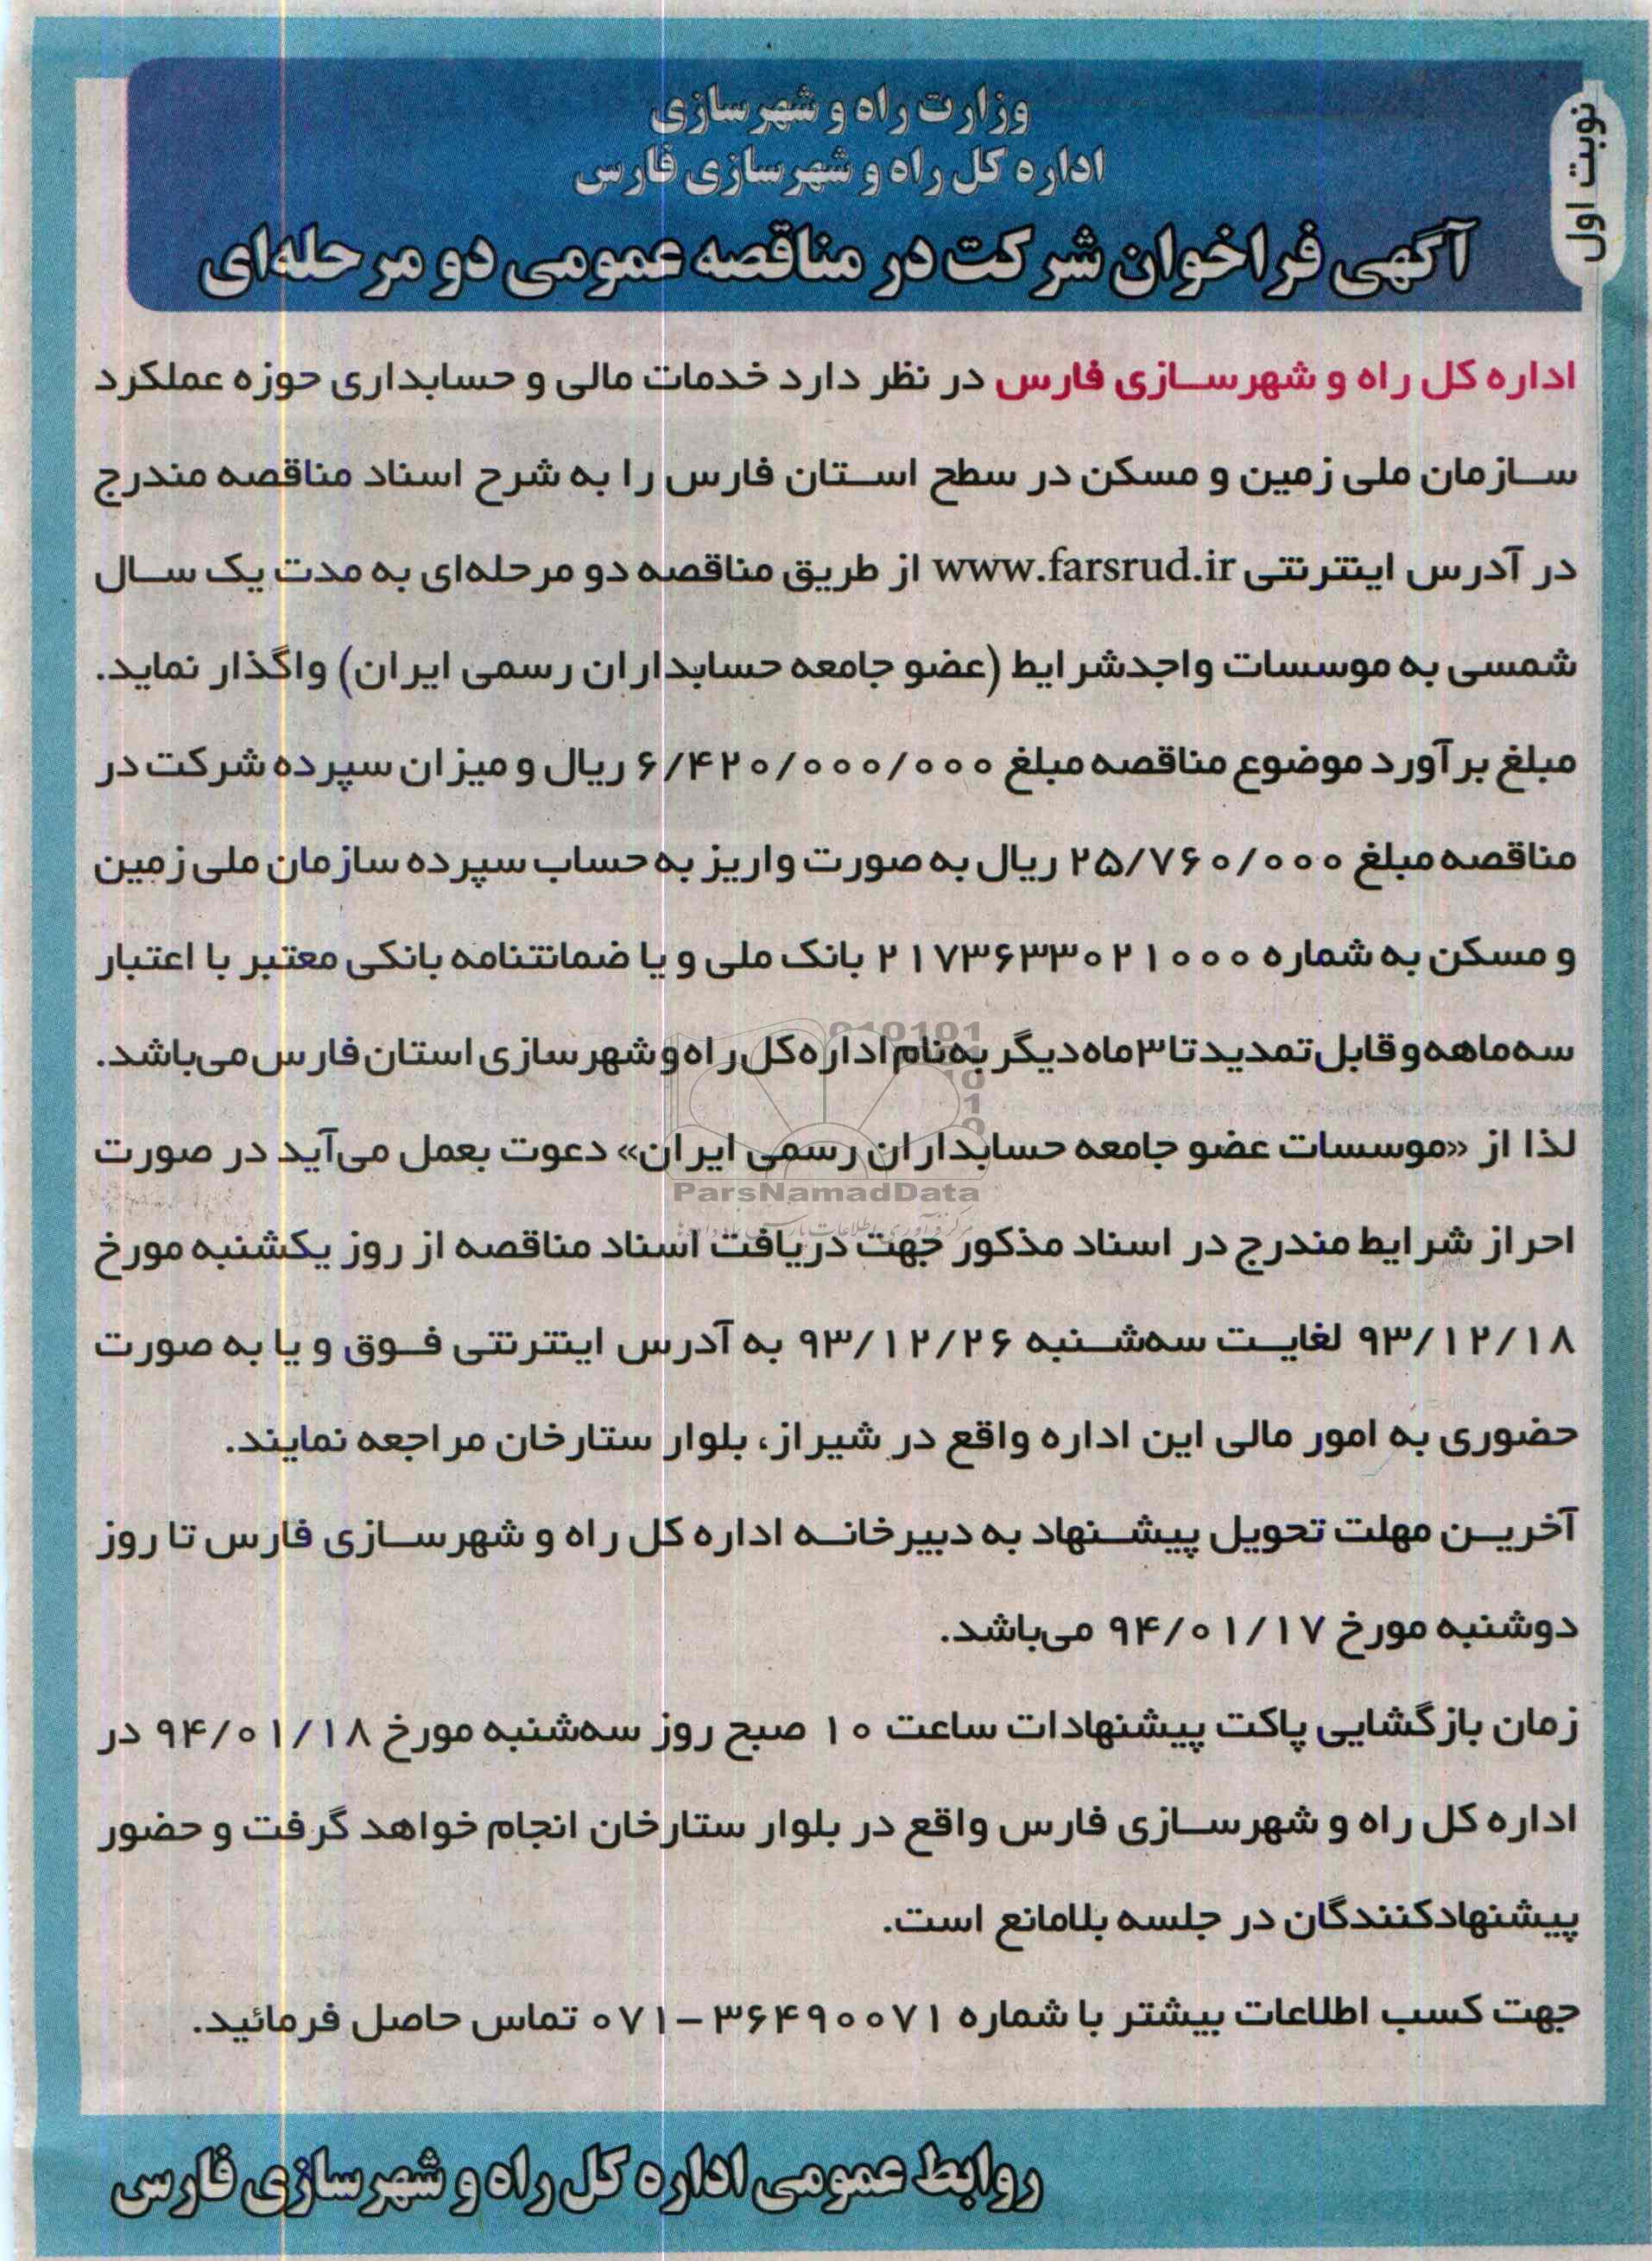 نوبت اول
وزارت راه و شهرسازی
اداره کل راه و شهرسازی فارس
آگهی فراخوان شرکت در مناقصه عمومی دو مرحله‌ای
اداره کل راه و شهرسازی فارس در نظر دارد خدمات مالی و حسابداری حوزه عملکرد
سازمان ملی زمین و مسکن در سطح استان فارس را به شرح اسناد مناقصه مندرج
در آدرس اینترنتی www.farsrud.ir از طریق مناقصه دو مرحله‌ای به مدت یک سال
شمسی به موسسات واجدشرایط (عضو جامعه حسابداران رسمی ایران) واگذار نماید.
مبلغ برآورد موضوع مناقصه مبلغ ۶/۴۲۰/۰۰۰/۰۰۰ ریال و میزان سپرده شرکت در
مناقصه مبلغ ۲۵/۷۶۰/۰۰۰ ریال به صورت واریز به حساب سپرده سازمان ملی زمین
و مسکن به شماره ۲۱۷۳۶۳۳۰۲۱۰۰۰ بانک ملی و یا ضمانتنامه بانکی معتبر با اعتبار
سه‌ماهه و قابل تمدید تا ۳ ماه دیگر به‌نام اداره کل راه و شهرسازی استان فارس می‌باشد.
لذا از «موسسات عضو جامعه حسابداران رسمی ایران» دعوت بعمل می‌آید در صورت
احراز شرایط مندرج در اسناد مذکور جهت دریافت اسناد مناقصه از روز یکشنبه مورخ
۹۳/۱۲/۱۸ لغایت سه‌شنبه ۹۳/۱۲/۲۶ به آدرس اینترنتی فوق و یا به صورت
حضوری به امور مالی این اداره واقع در شیراز، بلوار ستارخان مراجعه نمایند.
آخرین مهلت تحویل پیشنهاد به دبیرخانه اداره کل راه و شهرسازی فارس تا روز
دوشنبه مورخ ۹۴/۰۱/۱۷ می‌باشد.
زمان بازگشایی پاکت پیشنهادات ساعت ۱۰ صبح روز سه‌شنبه مورخ ۹۴/۰۱/۱۸ در
اداره کل راه و شهرسازی فارس واقع در بلوار ستارخان انجام خواهد گرفت و حضور
پیشنهادکنندگان در جلسه بلامانع است.
جهت کسب اطلاعات بیشتر با شماره ۳۶۴۹۰۰۷۱-۰۷۱ تماس حاصل فرمائید.
روابط عمومی اداره کل راه و شهرسازی فارس
ParsNamadData